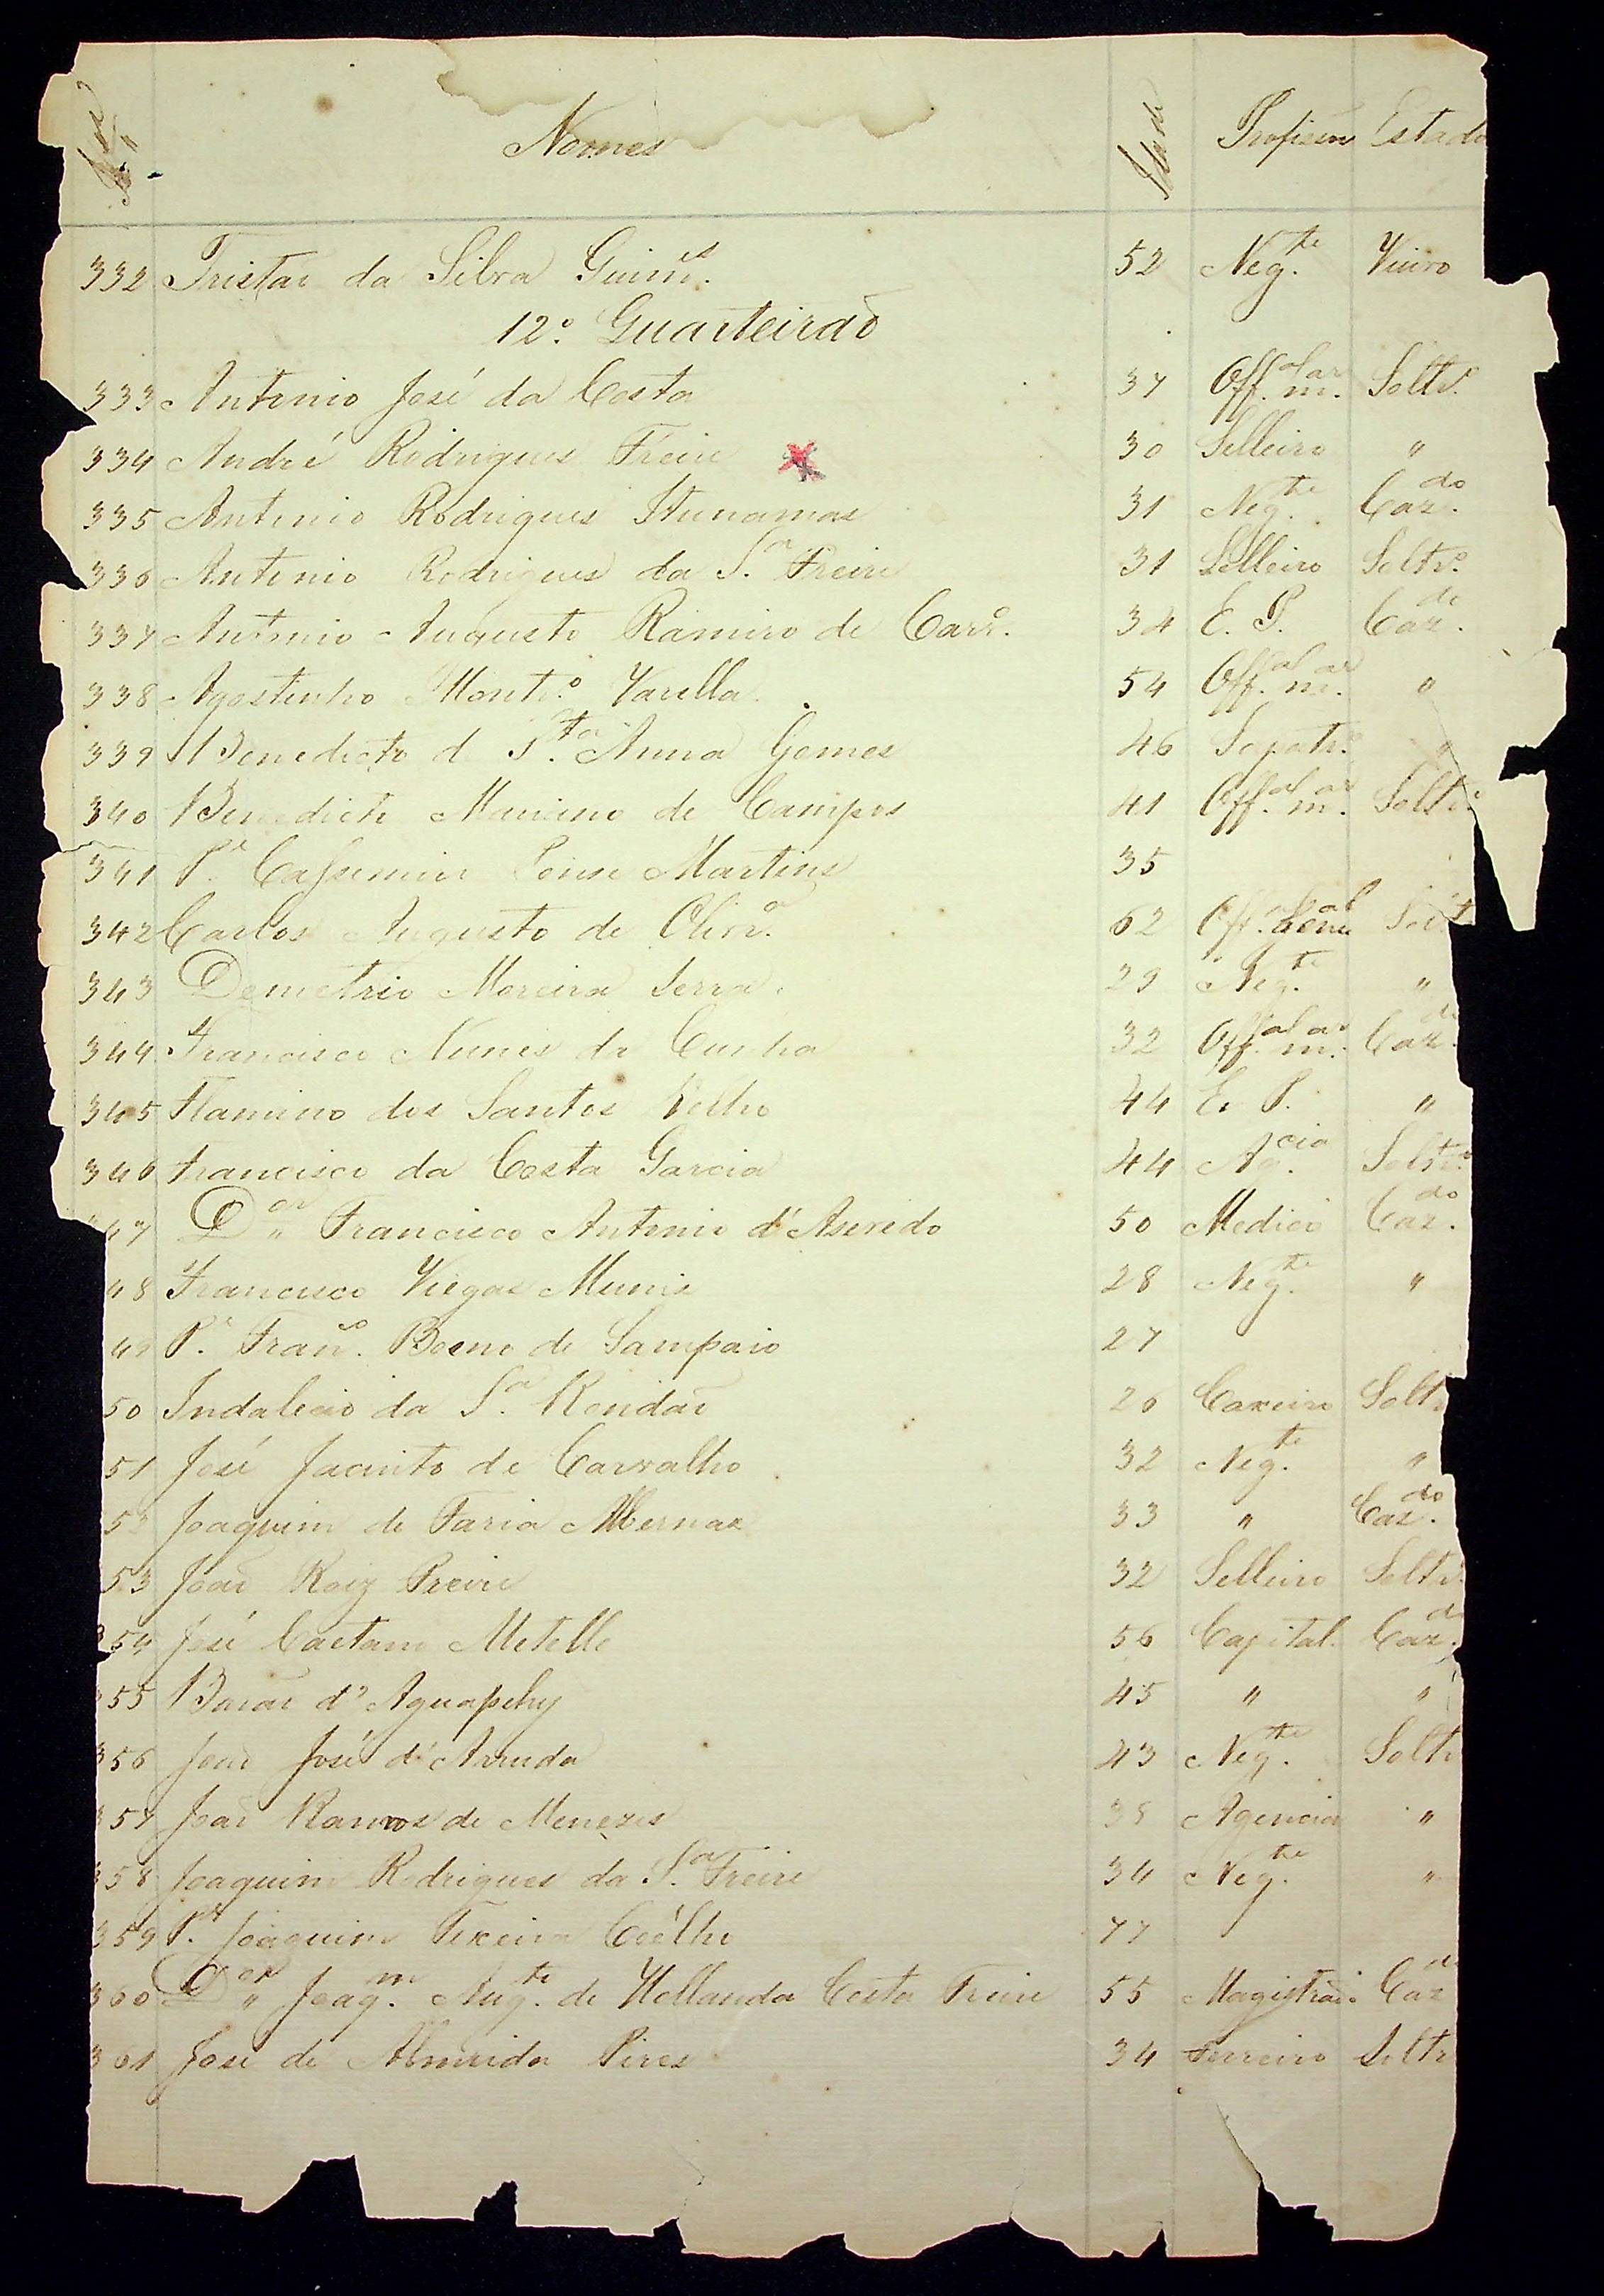 Nomes Idade Profisão Estado
332 Tristão da Silva Guim.es 52 Neg.te Viuvo
12.º Quarteirão
333 Antonio José da Costa 37 Off.al m.ar Soltr.º
334 André Rodrigues Freire 30 Selleiro "
335 Antonio Rodrigues Itunamas 31 Neg.te Caz.do
336 Antonio Rodrigues da S.a Freire 31 Selleiro Soltr.º
337 Antonio Augusto Ramiro de Carv.º 34 E. P. Caz.do
338 Agostinho Montr.º Varella 54 Off.al m.ar "
339 Benedicto d S.ta Anna Gomes 46 Sapatr.º "
340 Benedicto Mariano de Campos 41 Off.al m.ar Soltr.º
341 P.e Cassemiro Ponse Martins 35
342 Carlos Augusto de Olivr.a 62 Off.al Solt
343 Demetrio Moreira Serra 29 Neg.te "
344 Francisco Nunes da Cunha 32 Off.al m.ar Caz.do
345 Flamino dos Santos Velho 44 E. P. "
346 Francisco da Costa Garcia 44 Ag.cia Soltr.º
47 D.or Francisco Antonio d'Aseredo 50 Medico Caz.do
48 Francisco Viegas Munis 28 Neg.te "
49 P.e Fran.co Boeno de Sampaio 27
50 Indalecio da S.a Rondão 26 Caxeiro Soltr
51 José Jacinto de Carvalho 32 Neg.te "
52 Joaquim de Faria Albernaz 33 " Caz.do
53 João Roiz Freire 32 Selleiro Soltr.
354 José Caetano Metello 56 Capital. Caz.do
355 Barão d'Aguapehy 45 " "
356 João José d'Arruda 43 Neg.te Soltr
357 João Ramos de Menezes 38 Agencia "
358 Joaquim Rodrigues da S.a Freire 34 Neg.te "
359 P.e Joaquim Texeira Coêlho 77
360 D.or Joaq.m Aug.to de Hollanda Costa Freire 55 Magistrad. Caz
361 José de Almeida Pires 34 Ferreiro Soltr